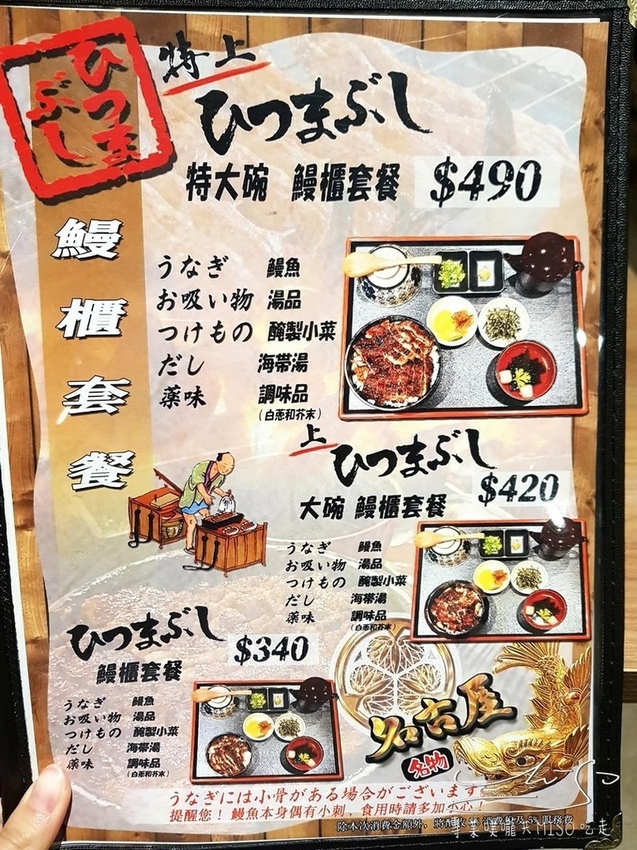 ひつま
ぶし
特上
ひつまぶし
特大碗 鰻櫃套餐 $490
鰻櫃套餐
うなぎ 鰻魚
お吸い物 湯品
つけもの 醃製小菜
だし 海帯湯
薬味 調味品
(白蔥和芥末)
上
ひつまぶし
大碗 鰻櫃套餐 $420
うなぎ 鰻魚
お吸い物 湯品
つけもの 醃製小菜
だし 海帯湯
薬味 調味品
(白蔥和芥末)
ひつまぶし
鰻櫃套餐 $340
うなぎ 鰻魚
お吸い物 湯品
つけもの 醃製小菜
だし 海帯湯
薬味 調味品
(白蔥和芥末)
名古屋
名物
うなぎには小骨がある場合がございます。
提醒您！鰻魚本身偶有小刺，食用時請多加小心！
除本次消費金額外，將酌收 5% 服務費
專業噗嚨共MISO吃走